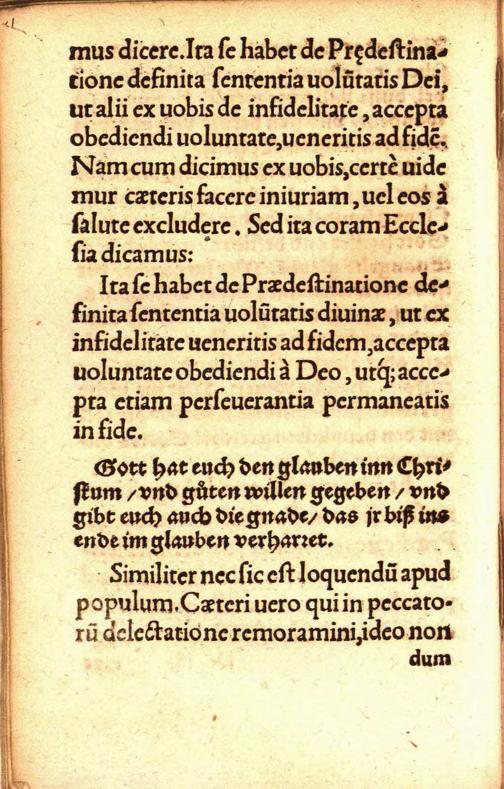 mus dicere. Ita se habet de Prędestina-
tione definita sententia uolũtatis Dei,
ut alii ex uobis de infidelitate, accepta
obediendi uoluntate, ueneritis ad fidẽ.
Nam cum dicimus ex uobis, certè uide
mur cæteris facere iniuriam, uel eos à
salute excludere. Sed ita coram Eccle-
sia dicamus:
Ita se habet de Prædestinatione de-
finita sententia uolũtatis diuinæ, ut ex
infidelitate ueneritis ad fidem, accepta
uoluntate obediendi à Deo, utq́; acce-
pta etiam perseuerantia permaneatis
in fide.
Gott hat euch den glauben inn Chri-
stum / vnd gůten willen gegeben / vnd
gibt euch auch die gnade / das jr biß ins
ende im glauben verharret.
Similiter nec sic est loquendũ apud
populum. Cæteri uero qui in peccato-
rũ delectatione remoramini, ideo non
dum